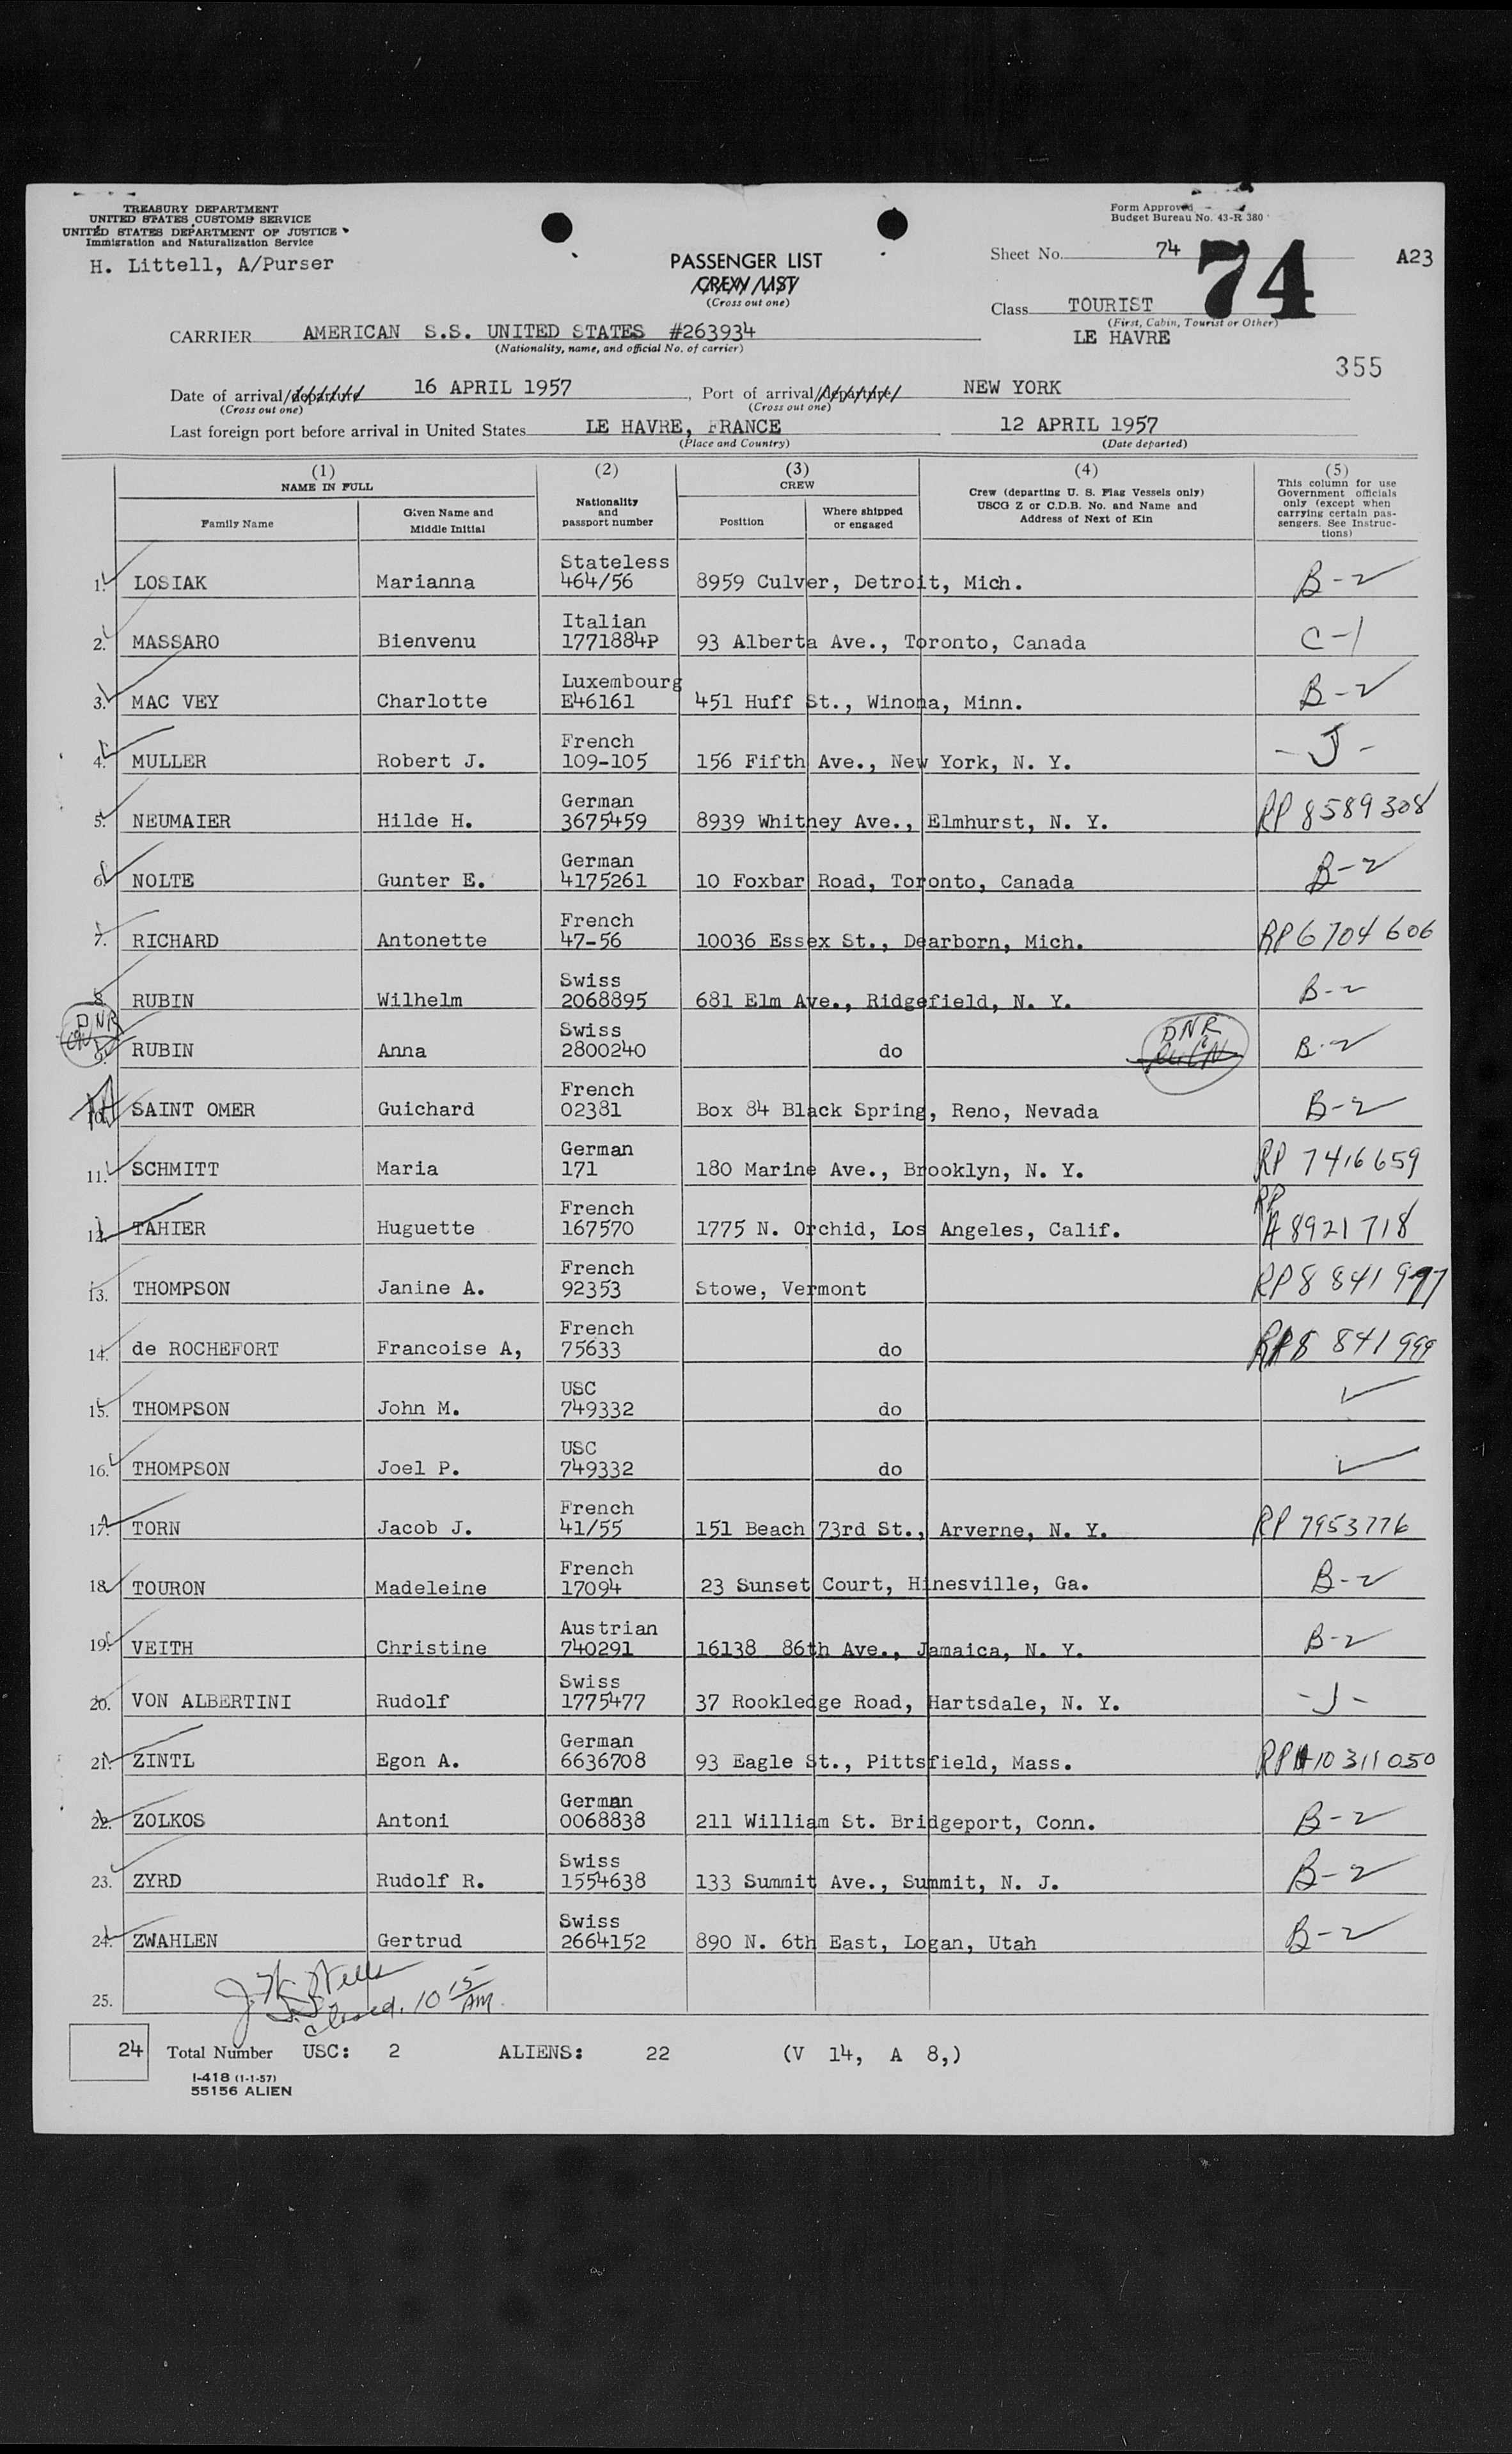 TREASURY DEPARTMENT
UNITED STATES CUSTOMS SERVICE
UNITED STATES DEPARTMENT OF JUSTICE
Immigration and Naturalization Service
H. Littell, A/Purser
Form Approved
Budget Bureau No. 43-R 380
PASSENGER LIST
CREW LIST
(Cross out one)
Sheet No. 74 74 A23
Class TOURIST
(First, Cabin, Tourist or Other)
LE HAVRE
355
CARRIER AMERICAN S.S. UNITED STATES #263934
(Nationality, name, and official No. of carrier)
Date of arrival/departure 16 APRIL 1957, Port of arrival/departure NEW YORK
(Cross out one) (Cross out one)
Last foreign port before arrival in United States LE HAVRE, FRANCE 12 APRIL 1957
(Place and Country) (Date departed)
(1) NAME IN FULL
Family Name
Given Name and Middle Initial
(2) Nationality and passport number
(3) CREW
Position
Where shipped or engaged
(4) Crew (departing U. S. Flag Vessels only) USCG Z or C.D.B. No. and Name and Address of Next of Kin
(5) This column for use Government officials only (except when carrying certain passengers. See Instructions)
1. LOSIAK Marianna Stateless 464/56 8959 Culver, Detroit, Mich. B-2
2. MASSARO Bienvenu Italian 1771884P 93 Alberta Ave., Toronto, Canada C-1
3. MAC VEY Charlotte Luxembourg E46161 451 Huff St., Winona, Minn. B-2
4. MULLER Robert J. French 109-105 156 Fifth Ave., New York, N. Y. - J -
5. NEUMAIER Hilde H. German 3675459 8939 Whitney Ave., Elmhurst, N. Y. RP 8589308
6. NOLTE Gunter E. German 4175261 10 Foxbar Road, Toronto, Canada B-2
7. RICHARD Antonette French 47-56 10036 Essex St., Dearborn, Mich. RP 6704606
8. RUBIN Wilhelm Swiss 2068895 681 Elm Ave., Ridgefield, N. Y. B-2
DNR
9. RUBIN Anna Swiss 2800240 do DNR B-2
10. SAINT OMER Guichard French 02381 Box 84 Black Spring, Reno, Nevada B-2
11. SCHMITT Maria German 171 180 Marine Ave., Brooklyn, N. Y. RP 7416659
12. TAHIER Huguette French 167570 1775 N. Orchid, Los Angeles, Calif. RP A 8921718
13. THOMPSON Janine A. French 92353 Stowe, Vermont RP 8 841 997
14. de ROCHEFORT Francoise A, French 75633 do RP 8 841 999
15. THOMPSON John M. USC 749332 do
16. THOMPSON Joel P. USC 749332 do
17. TORN Jacob J. French 41/55 151 Beach 73rd St., Arverne, N. Y. RP 7953776
18. TOURON Madeleine French 17094 23 Sunset Court, Hinesville, Ga. B-2
19. VEITH Christine Austrian 740291 16138 86th Ave., Jamaica, N. Y. B-2
20. VON ALBERTINI Rudolf Swiss 1775477 37 Rookledge Road, Hartsdale, N. Y. - J -
21. ZINTL Egon A. German 6636708 93 Eagle St., Pittsfield, Mass. RP A10 311 050
22. ZOLKOS Antoni German 0068838 211 William St. Bridgeport, Conn. B-2
23. ZYRD Rudolf R. Swiss 1554638 133 Summit Ave., Summit, N. J. B-2
24. ZWAHLEN Gertrud Swiss 2664152 890 N. 6th East, Logan, Utah B-2
25.
Closed. 10 15 AM.
24 Total Number USC: 2 ALIENS: 22 (V 14, A 8,)
I-418 (1-1-57)
55156 ALIEN